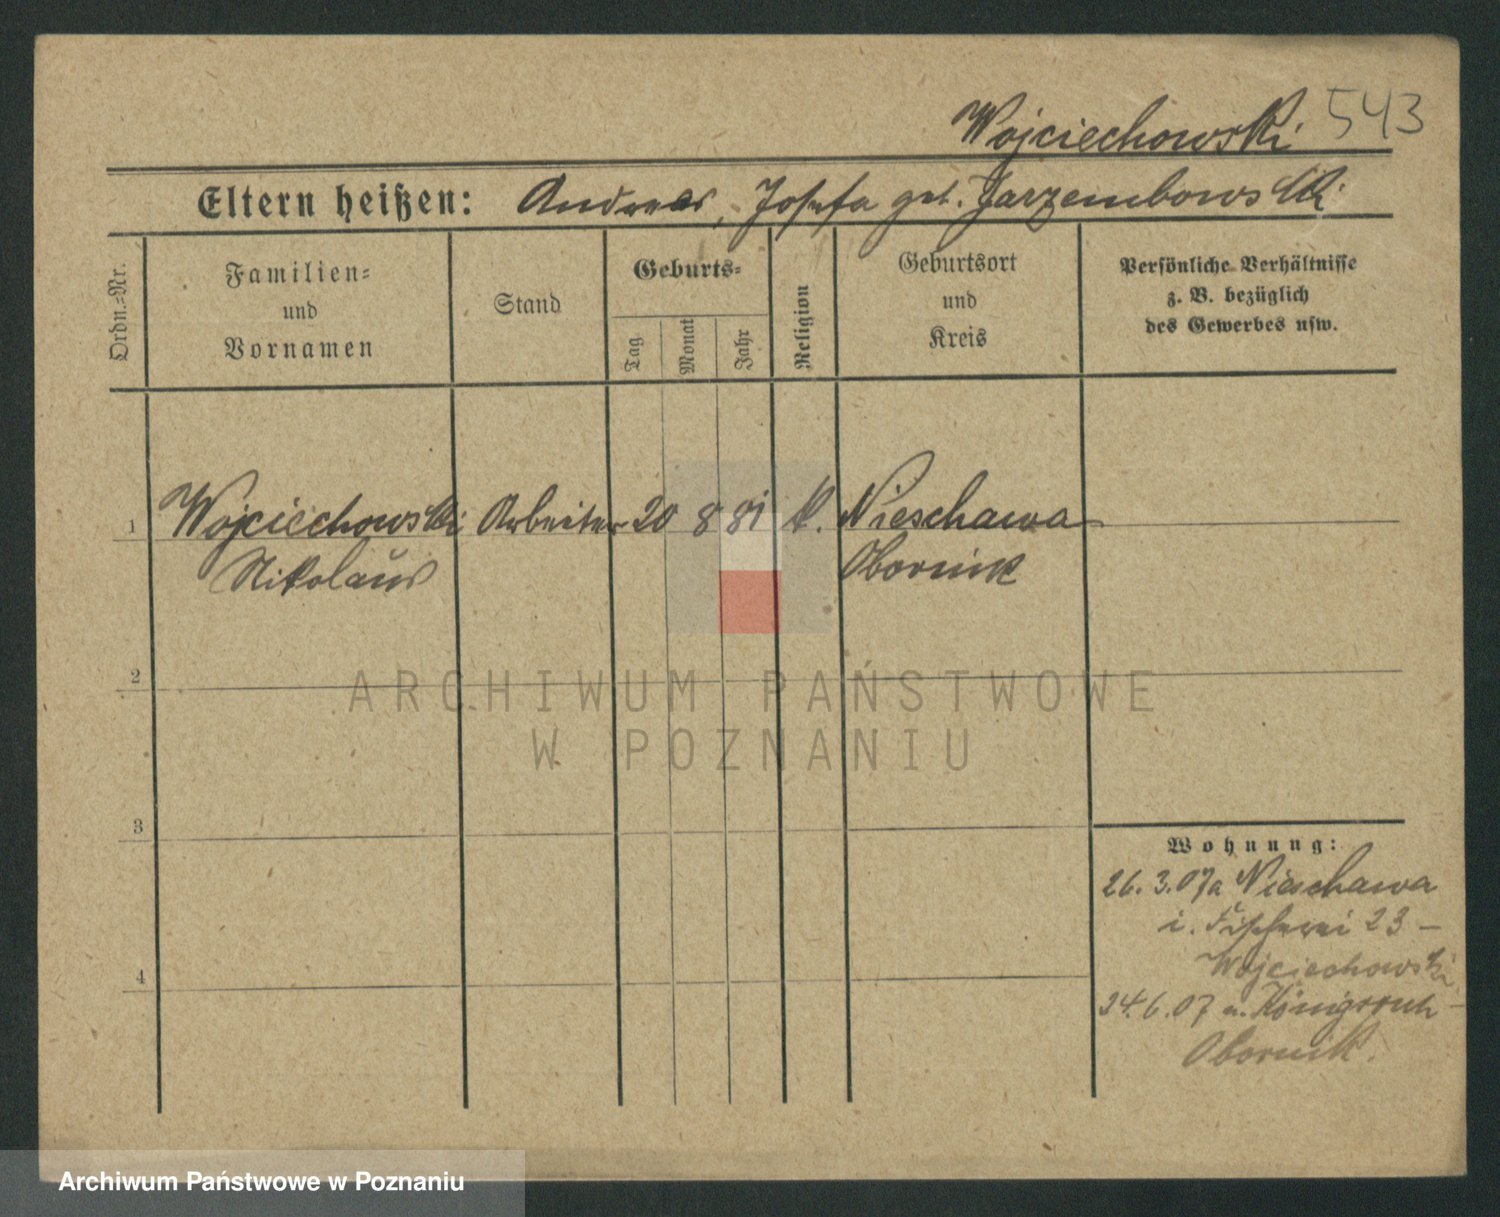 Wojciechowski 543
Eltern heißen: Andreas, Josefa geb. Jarzembowski
Ordn.-Nr.
Familien-
und
Vornamen
Stand
Geburts-
Tag
Monat
Jahr
Religion
Geburtsort
und
Kreis
Persönliche Verhältnisse
z. B. bezüglich
des Gewerbes usw.
1 Wojciechowski Arbeiter 20 8 81 k. Nieschawa
Nikolaus Obornik
2
3
4
Wohnung:
26.3.07 a Nieschawa
i. Fischerei 23 –
Wojciechowski
24.6.07 n. Königsruh –
Obornik.
ARCHIWUM PAŃSTWOWE
W POZNANIU
Archiwum Państwowe w Poznaniu